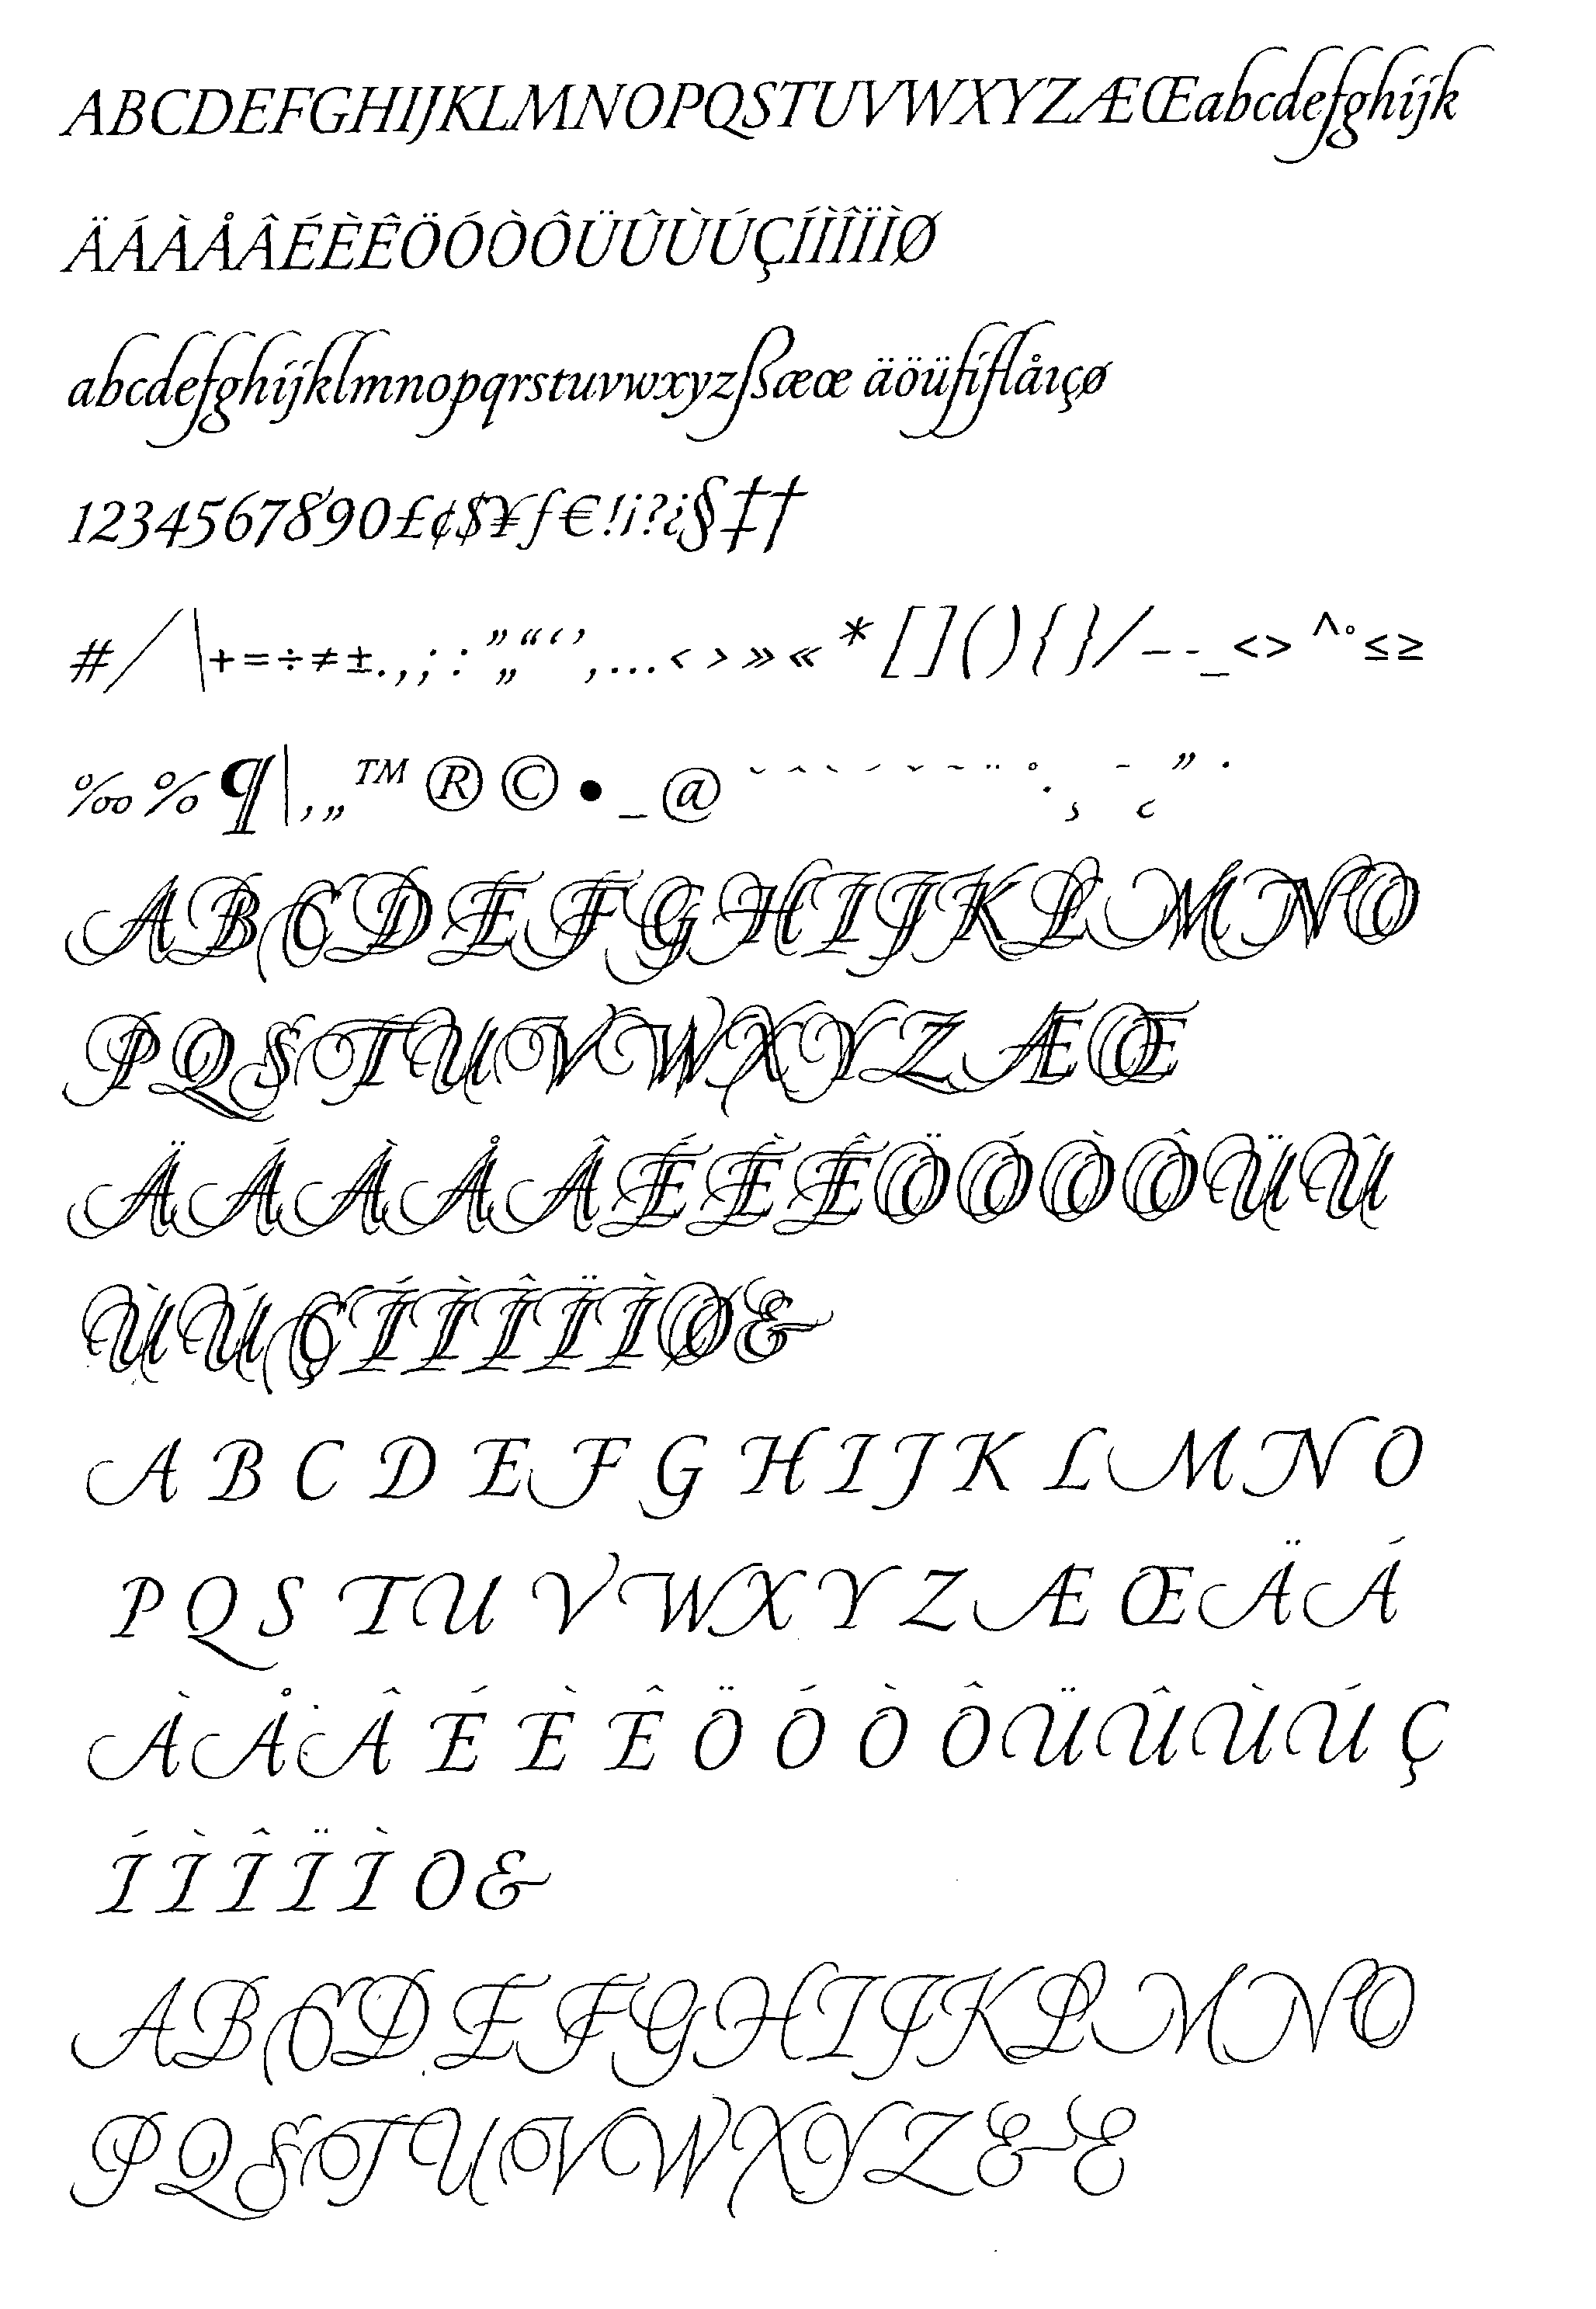 ABCDEFGHIJKLMNOPQSTUVWXYZÆŒabcdefghijk
ÄÁÀÅÂÉÈÊÖÓÒÔÜÛÙÚÇÍÌÎÏÌØ
abcdefghijklmnopqrstuvwxyzßæœ äöüfiflåıçø
1234567890£¢$¥ƒ€!¡?¿§‡†
#/\+=÷≠±.,;:”„“‘’‚…‹›»«*[](){}/–-_<>^°≤≥
‰%¶|‚„™®©•_@˘ˆ`´ˇ˜¨˚·¸¯˛˝˙
ABCDEFGHIJKLMNO
PQSTUVWXYZÆŒ
ÄÁÀÅÂÉÈÊÖÓÒÔÜÛ
ÙÚÇÍÌÎÏÌØ&
A B C D E F G H I J K L M N O
P Q S T U V W X Y Z Æ Œ Ä Á
À Å Â É È Ê Ö Ó Ò Ô Ü Û Ù Ú Ç
Í Ì Î Ï Ì O &
ABCDEFGHIJKLMNO
PQSTUVWXYZ&E